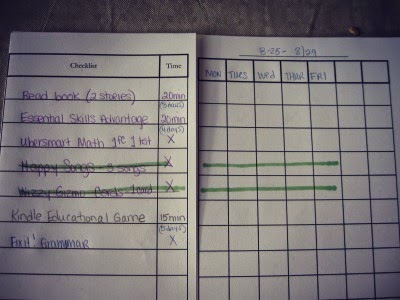 8-25- 8/29
Checklist Time
MON TUES Wed THUR FRI
Read book (2 stories) 20min
(5days)
Essential Skills Advantage 20min
(4days)
Ubersmart Math 1 1 X
Happy Songs X
Wizzy Gizmo 1 X
Kindle Educational Game 15min
(5days)
Grammar X